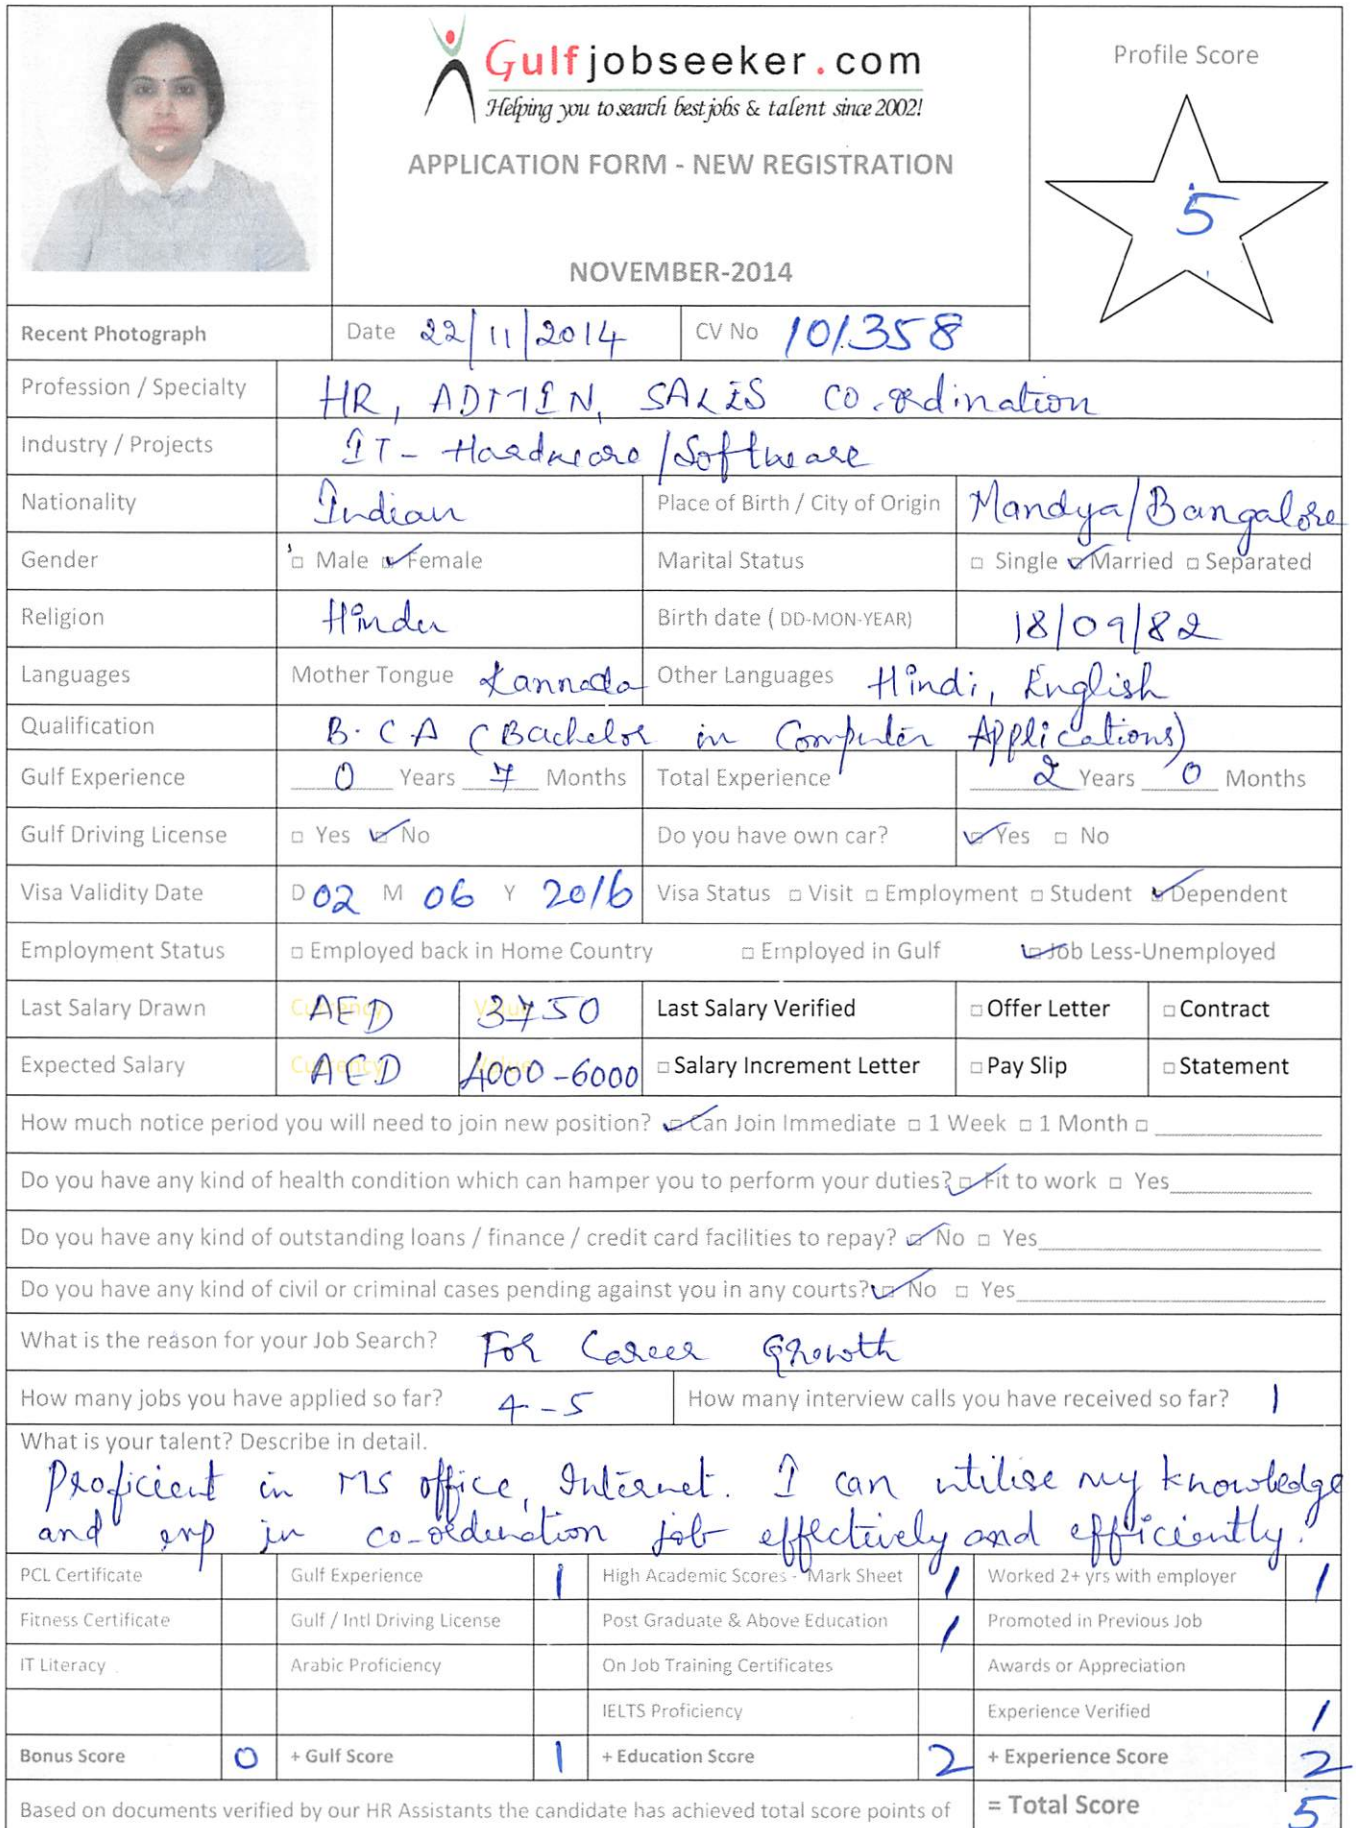 Gulfjobseeker.com
Helping you to search best jobs & talent since 2002!
Profile Score
APPLICATION FORM - NEW REGISTRATION
5
NOVEMBER-2014
Recent Photograph Date 22/11/2014 CV No 101358
Profession / Specialty HR, ADMIN, SALES CO-ordination
Industry / Projects IT - Hardware/Software
Nationality Indian Place of Birth / City of Origin Mandya/Bangalore
Gender □ Male ☑ Female Marital Status □ Single ☑ Married □ Separated
Religion Hindu Birth date ( DD-MON-YEAR) 18/09/82
Languages Mother Tongue Kannada Other Languages Hindi, English
Qualification B.C.A (Bachelor in Computer Applications)
Gulf Experience 0 Years 7 Months Total Experience 2 Years 0 Months
Gulf Driving License □ Yes ☑ No Do you have own car? ☑ Yes □ No
Visa Validity Date D 02 M 06 Y 2016 Visa Status □ Visit □ Employment □ Student ☑ Dependent
Employment Status □ Employed back in Home Country □ Employed in Gulf ☑ Job Less-Unemployed
Last Salary Drawn Currency AED Value 3750 Last Salary Verified □ Offer Letter □ Contract
Expected Salary Currency AED Value 4000-6000 □ Salary Increment Letter □ Pay Slip □ Statement
How much notice period you will need to join new position? ☑ Can Join Immediate □ 1 Week □ 1 Month □
Do you have any kind of health condition which can hamper you to perform your duties? ☑ Fit to work □ Yes
Do you have any kind of outstanding loans / finance / credit card facilities to repay? ☑ No □ Yes
Do you have any kind of civil or criminal cases pending against you in any courts? ☑ No □ Yes
What is the reason for your Job Search? For Career Growth
How many jobs you have applied so far? 4-5 How many interview calls you have received so far? 1
What is your talent? Describe in detail.
Proficient in MS office, Internet. I can utilise my knowledge
and exp in co-ordination job effectively and efficiently.
PCL Certificate Gulf Experience 1 High Academic Scores - Mark Sheet 1 Worked 2+ yrs with employer 1
Fitness Certificate Gulf / Intl Driving License Post Graduate & Above Education 1 Promoted in Previous Job
IT Literacy Arabic Proficiency On Job Training Certificates Awards or Appreciation
IELTS Proficiency Experience Verified 1
Bonus Score 0 + Gulf Score 1 + Education Score 2 + Experience Score 2
Based on documents verified by our HR Assistants the candidate has achieved total score points of = Total Score 5